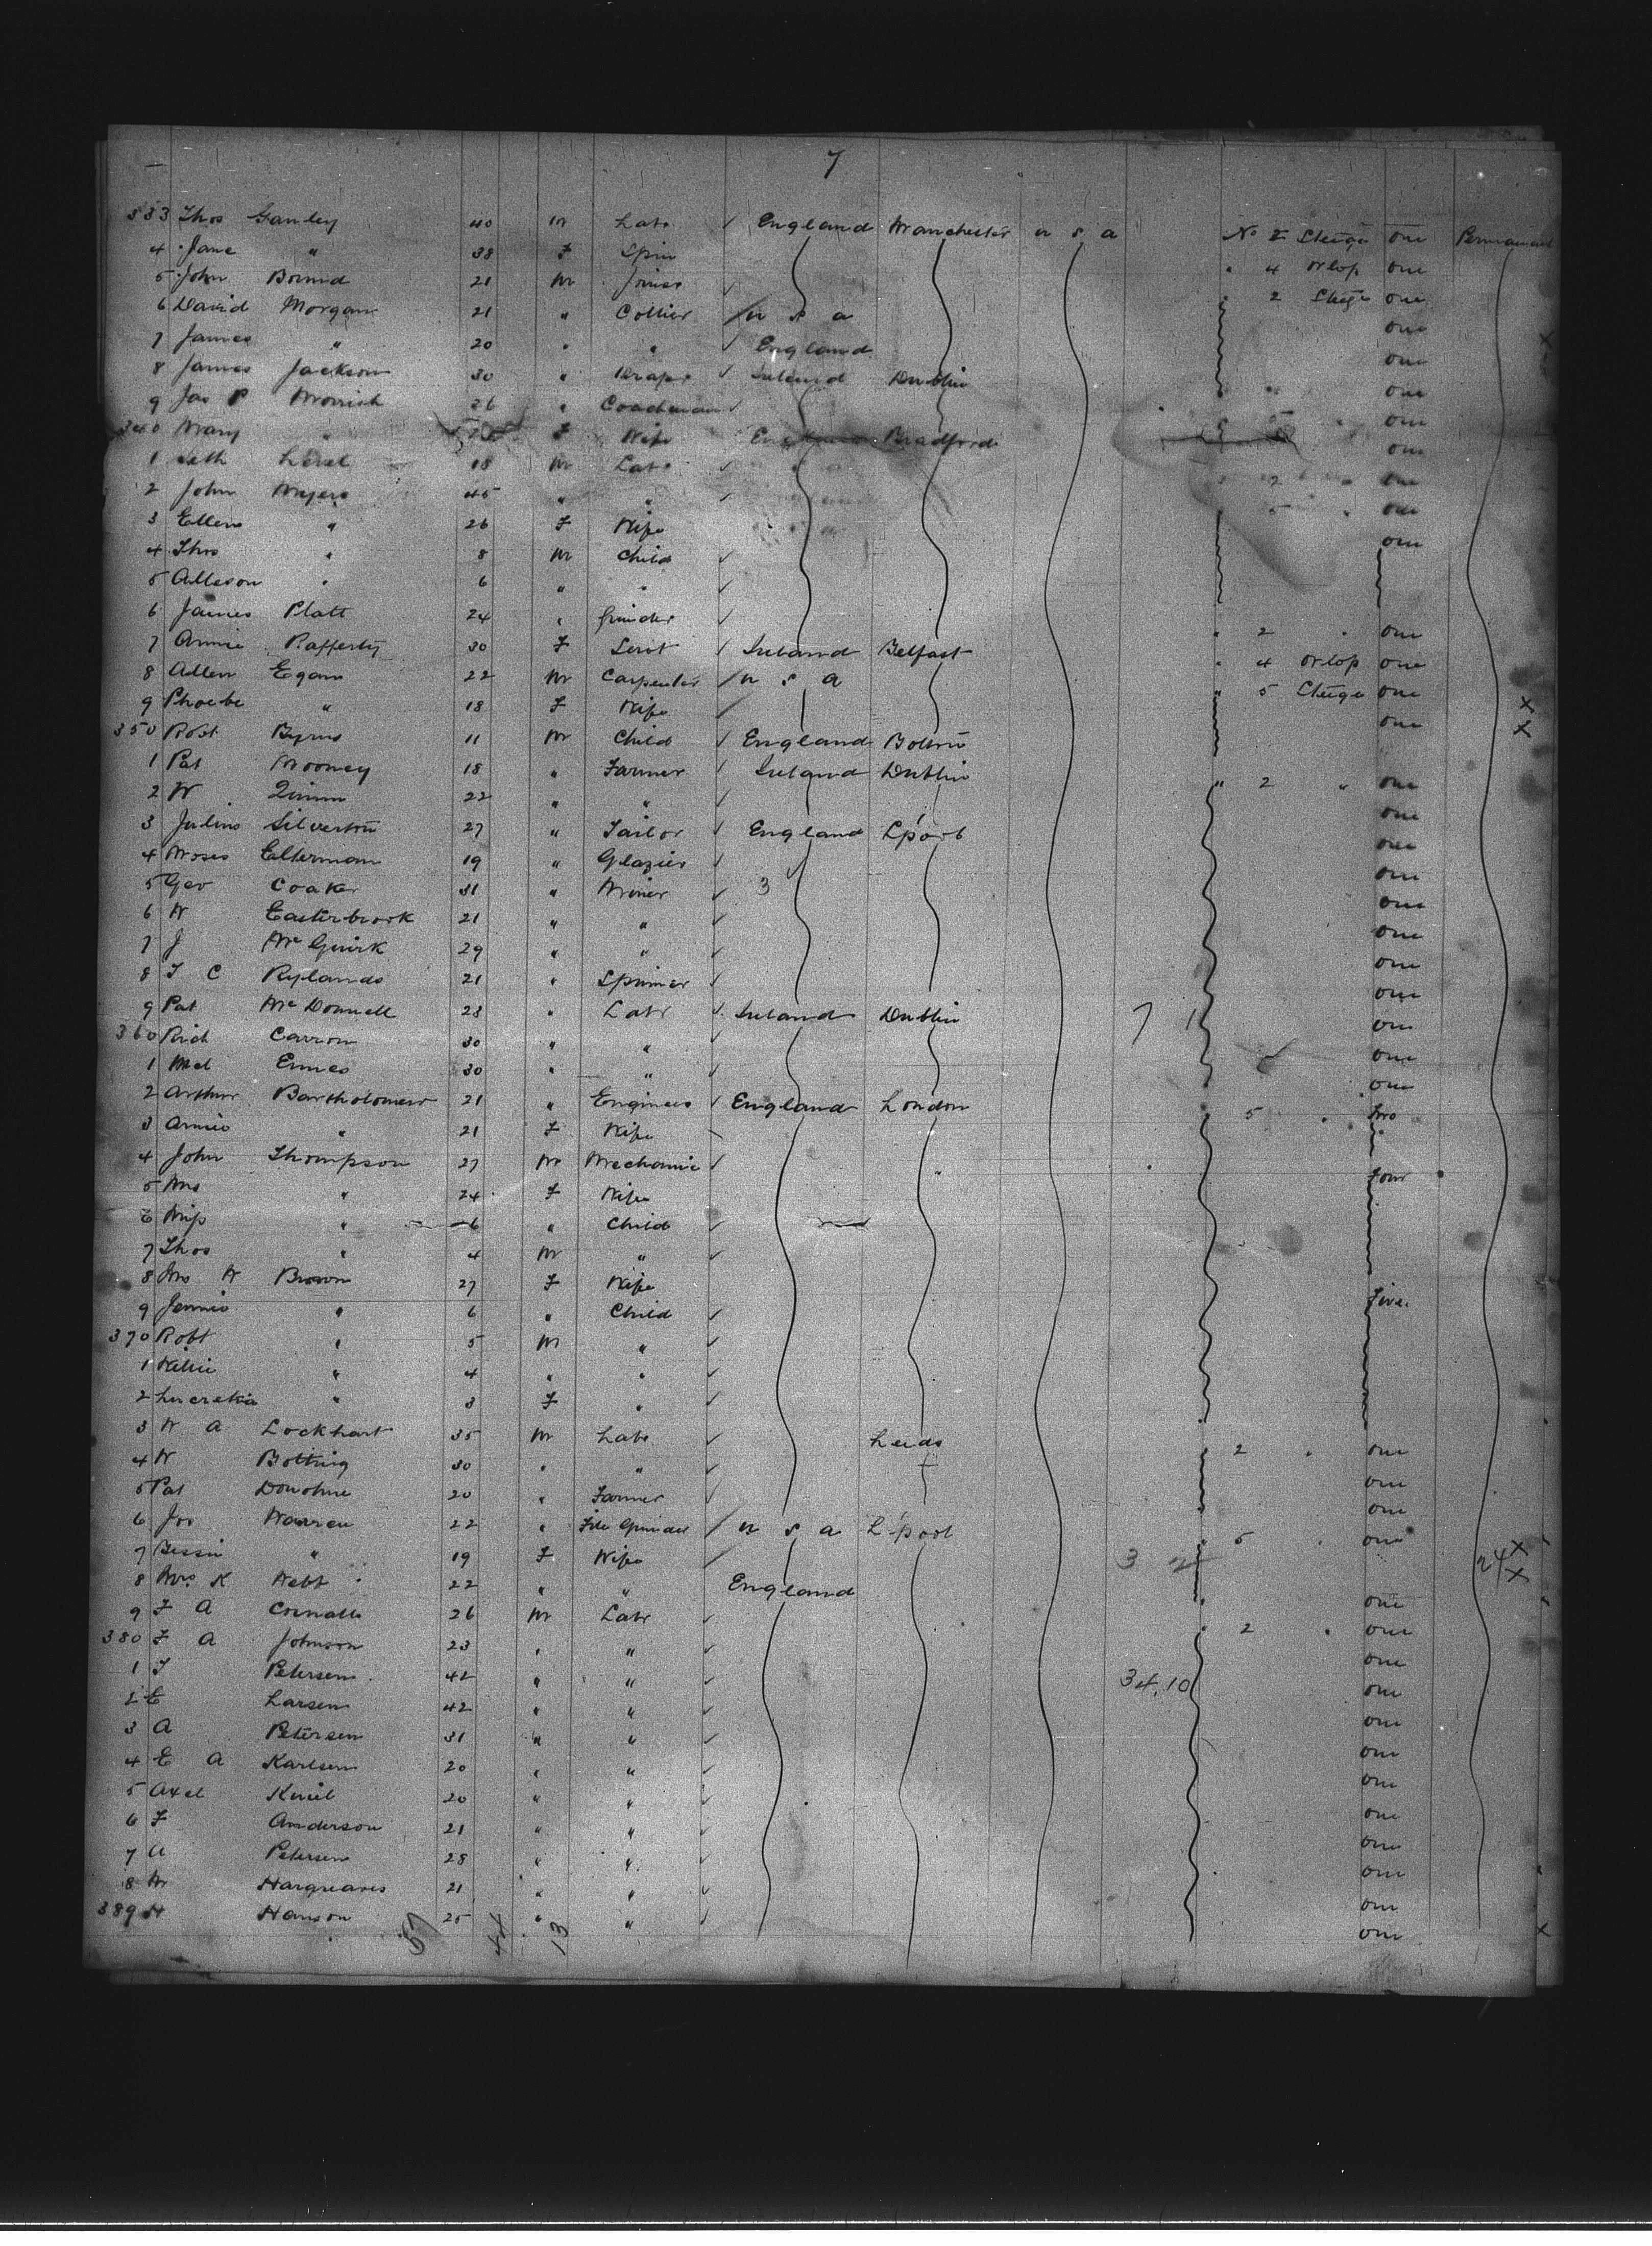 7
333 Thos Ganley 40 M Labr England Manchester U S A No 2 Steege one Permanent
4 Jane " 38 F Spin " 4 Orlop one
5 John 21 M Joiner " 2 Steege one
6 David Morgan 21 " Collier U S A one
7 James " 20 " " England one
8 James Jackson 30 " Drapr Ireland Dublin one
9 Jas P Morrish 26 " Coachman 5 " one
340 Mary " F Wife England Bradford one
1 Seth 18 M Labr 2 " one
2 John Myers 45 " " 5 " one
3 Ellen " 26 F Wife one
4 Thos " 8 M Child
5 Alleson " 6 " "
6 James Platt 24 " Grinder " 2 " one
7 Annie Rafferty 30 F Servt Ireland Belfast " 4 Orlop one
8 Allen Egan 22 M Carpenter U S A " 5 Steege one X
9 Phoebe " 18 F Wife one X
350 Robt Byrns 11 M Child England Bolton
1 Pat Mooney 18 " Farmer Ireland Dublin " 2 " one
2 W Quinn 22 " " one
3 Julius Silverton 27 " Tailor England L'pool one
4 Moses Elterman 19 " Glazier one
5 Geo Coaker 31 " Miner 3 one
6 W Easterbrook 21 " " one
7 J McGuirk 29 " " one
8 T C Rylands 21 " Spinner one
9 Pat McDonnell 23 " Labr Ireland Dublin 7 1 one
360 Rich Carron 30 " " one
1 Mcl Ennes 30 " " one
2 Arthur Bartholomew 21 " Engineer England London 5 " Two
3 Annie " 21 F Wife
4 John Thompson 27 M Mechanic " Four
5 Mrs " 24 F Wife
6 Miss " 6 " Child
7 Thos " 4 M "
8 Mrs W Brown 27 F Wife Five
9 Jennie " 6 " Child
370 Robt " 5 M "
1 Willie " 4 " "
2 Lucretia " 3 F "
3 W A Lockhart 35 M Labr Leeds " 2 " one
4 W Botting 30 " " one
5 Pat Donohue 20 " Farmer one
6 Jos Warren 22 " File Grinder U S A L'pool " 5 one X
7 Bessie " 19 F Wife 3 2 24 X
8 Mrs K Webb 22 " " England one
9 F A 26 M Labr " 2 " one
380 F A Johnson 23 " " one
1 J Petersen 42 " " 34.10 one
2 E Larsen 42 " " one
3 A Petersen 31 " " one
4 E A Karlsen 20 " " one
5 Axel 20 " " one
6 F Anderson 21 " " one
7 A Petersen 28 " " one
8 W Hargreaves 21 " " one
389 H Hanson 25 " " one
57 44 13